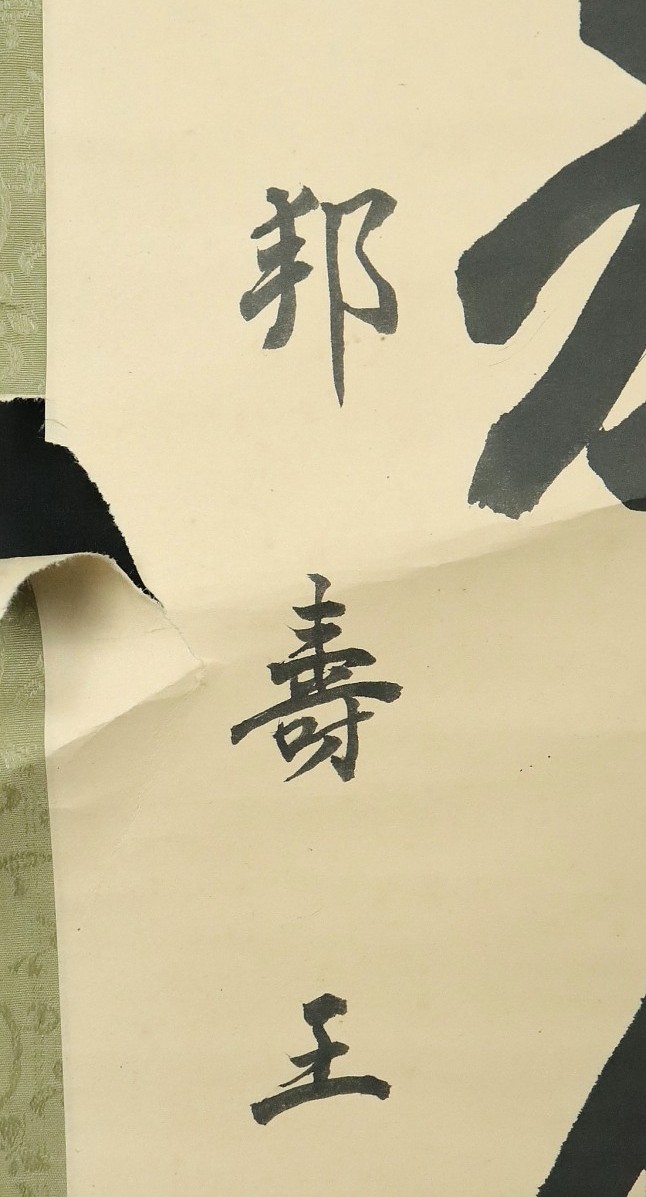 邦壽王